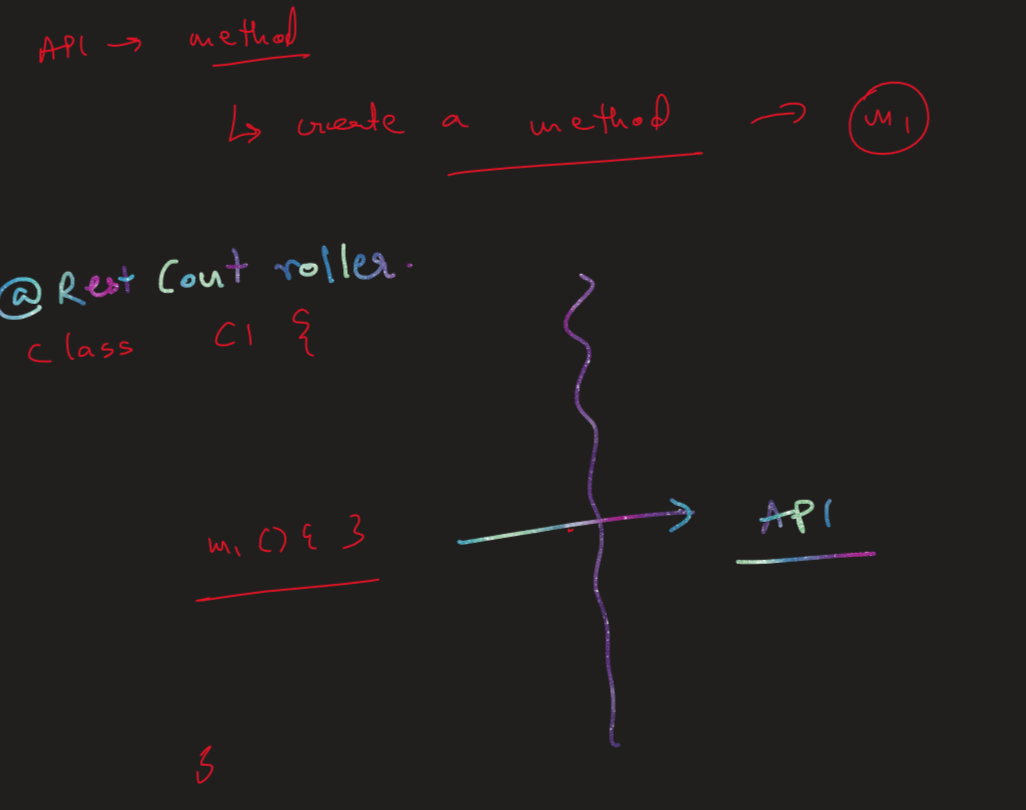 API → method
↳ create a method → m1
@Rest Controller.
class C1 {
m1 () { }
API
}